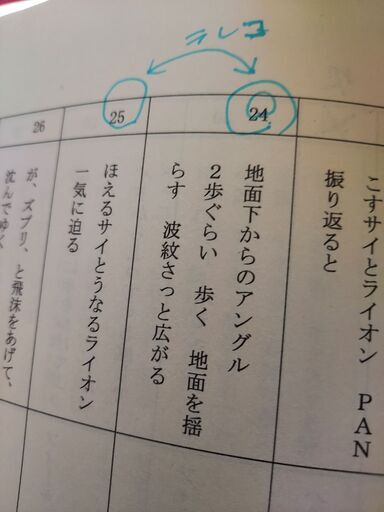 テレコ
こすサイとライオン　PAN
振り返ると
24
地面下からのアングル
２歩ぐらい　歩く　地面を揺
らす　波紋さっと広がる
25
ほえるサイとうなるライオン
一気に迫る
26
が、ズブリ、と飛沫をあげて、
沈んでゆく